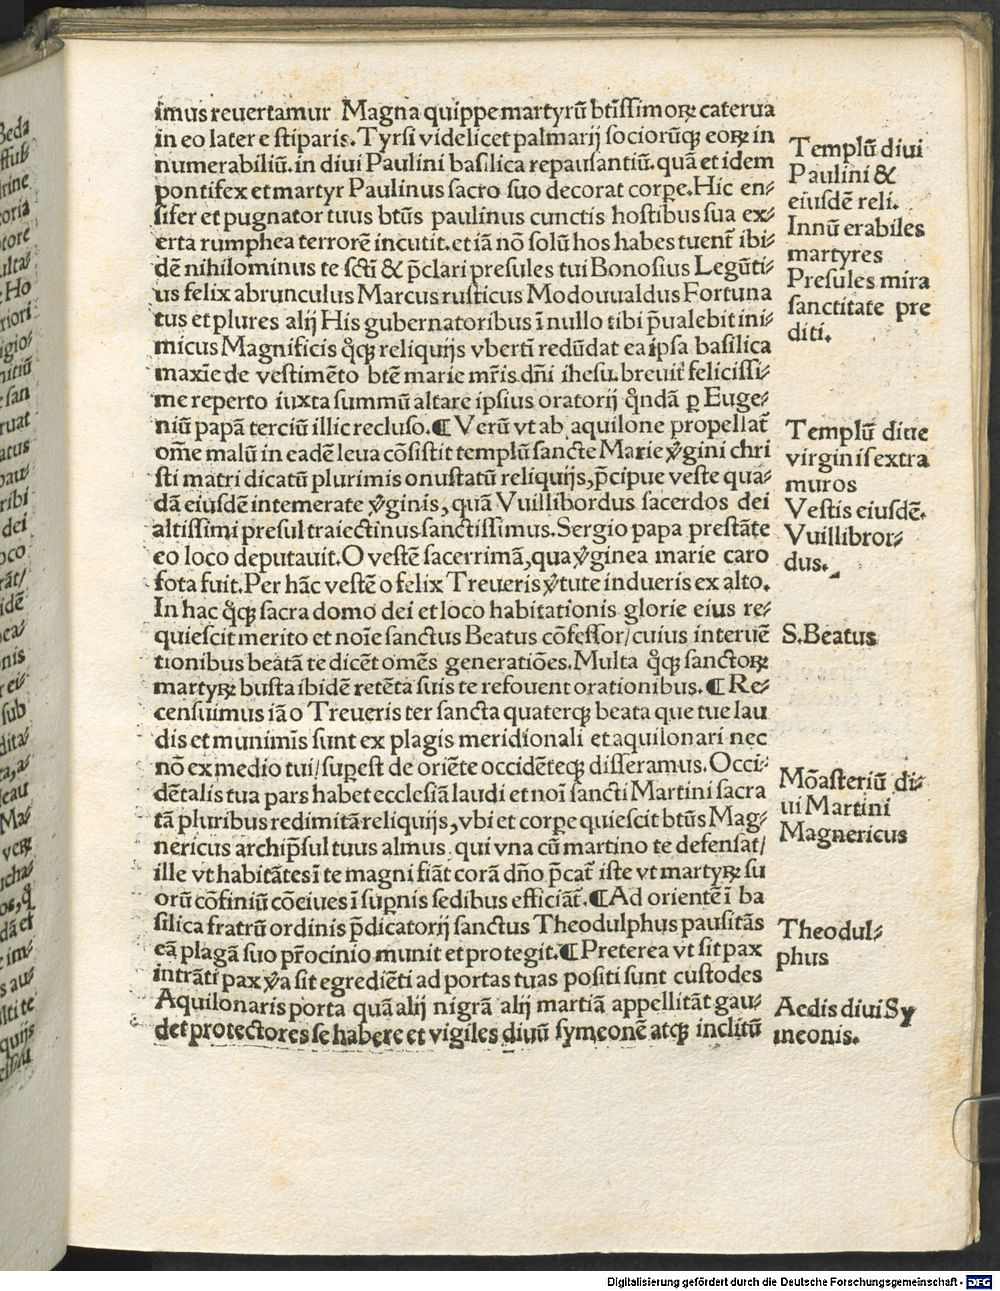 imus reuertamur Magna quippe martyrū btīssimoꝝ caterua
in eo latere stiparis. Tyrsi videlicet palmarij sociorūqꝫ eoꝝ in
numerabiliū. in diui Paulini basilica repausantiū. quā et idem
pontifex et martyr Paulinus sacro suo decorat corꝑe. Hic en⸗
sifer et pugnator tuus btūs paulinus cunctis hostibus sua ex⸗
erta rumphea terrorē incutit. et iā nō solū hos habes tuent̄ ibi⸗
dē nihilominus te sctī & p̄clari presules tui Bonosius Legūti⸗
us felix abrunculus Marcus rusticus Modouualdus Fortuna
tus et plures alij His gubernatoribus ī nullo tibi p̄ualebit ini⸗
micus Magnificis qͦqꝫ reliquijs vbertī redūdat ea ipsa basilica
maxīe de vestimēto btē marie mr̄is dn̄i ihesu. breuit̄ felicissi⸗
me reperto iuxta summū altare ipsius oratorij qͦndā ꝑ Euge⸗
niū papā terciū illic recluso. ¶ Verū vt ab aquilone propellat̄
om̄e malū in eadē leua cōsistit templū sancte Marie v̓gini chri
sti matri dicatū plurimis onustatū reliquijs, p̄cipue veste qua⸗
dā eiusdē intemerate v̓ginis, quā Vuillibordus sacerdos dei
altissimi presul traiectinus sanctissimus. Sergio papa prestāte
eo loco deputauit. O vestē sacerrimā, qua v̓ginea marie caro
fota fuit. Per hāc vestē o felix Treueris v̓tute indueris ex alto.
In hac qͦqꝫ sacra domo dei et loco habitationis glorie eius re⸗
quiescit merito et noīe sanctus Beatus cōfessor/ cuius interuē
tionibus beatā te dicēt omēs generatiōes. Multa qͦqꝫ sanctoꝝ
martyꝝ busta ibidē retēta suis te refouent orationibus. ¶ Re⸗
censuimus iā o Treueris ter sancta quaterqꝫ beata que tue lau
dis et munimīs sunt ex plagis meridionali et aquilonari nec
nō ex medio tui/ suꝑest de oriēte occidēteqꝫ disseramus. Occi⸗
dētalis tua pars habet ecclesiā laudi et noī sancti Martini sacra
tā pluribus redimitā reliquijs, vbi et corꝑe quiescit btūs Mag⸗
nericus archip̄sul tuus almus qui vna cū martino te defensat/
ille vt habitātes ī te magnifiāt corā dn̄o p̄cat̄ iste vt martyꝝ su
orū cōfiniū cōciues ī suꝑnis sedibus efficiāt̄. ¶ Ad orientē ī ba
silica fratrū ordinis p̄dicatorij sanctus Theodulphus pausitās
eā plagā suo pr̄ocinio munit et protegit. ¶ Preterea vt sit pax
intrāti pax v̓a sit egrediēti ad portas tuas positi sunt custodes
Aquilonaris porta quā alij nigrā alij martiā appellitāt gau⸗
det protectores se habere et vigiles diuū symeonē atqꝫ inclitū
Templū diui
Paulini &
eiusdē reli.
Innūerabiles
martyres
Presules mira
sanctitate pre
diti.
Templū diue
virginis extra
muros
Vestis eiusdē.
Vuillibror⸗
dus.
S. Beatus
Mōasteriū di⸗
ui Martini
Magnericus
Theodul⸗
phus
Aedis diui Sy
meonis.
Digitalisierung gefördert durch die Deutsche Forschungsgemeinschaft - DFG